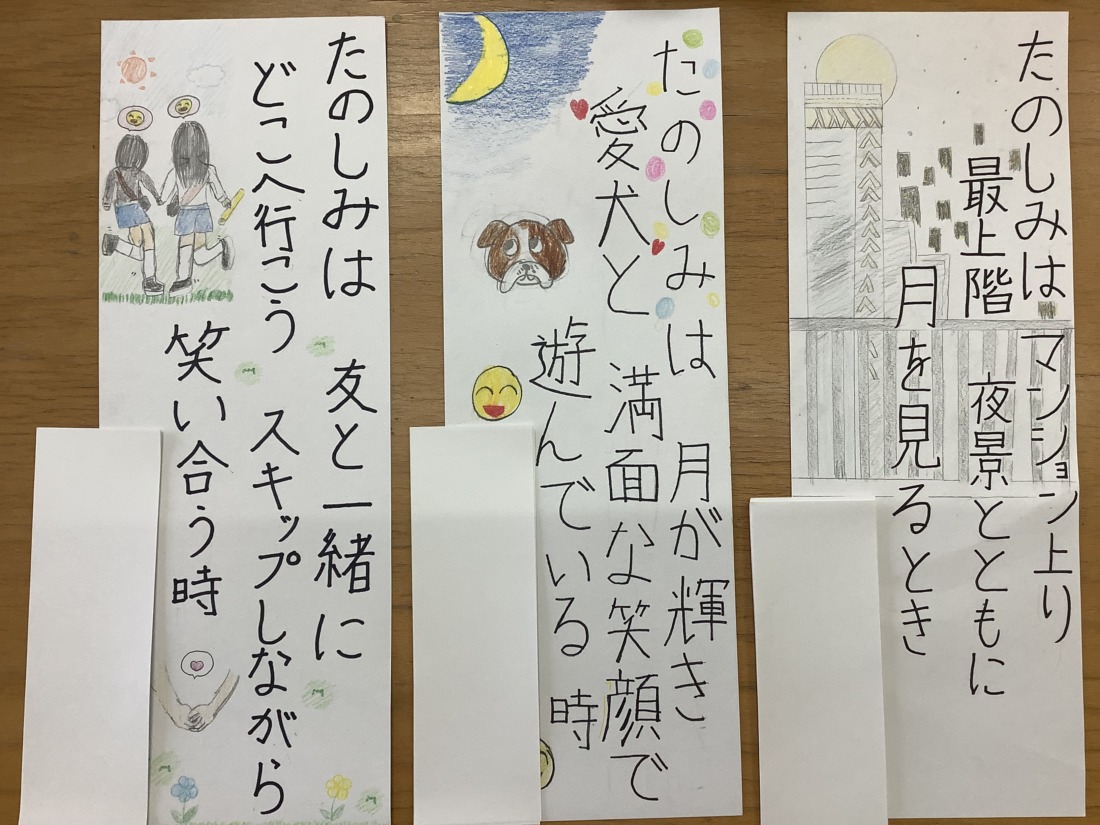 たのしみは マンション上り
最上階 夜景とともに
月を見るとき
たのしみは 月が輝き
愛犬と 満面な笑顔で
遊んでいる 時
たのしみは 友と一緒に
どこへ行こう スキップしながら
笑い合う時